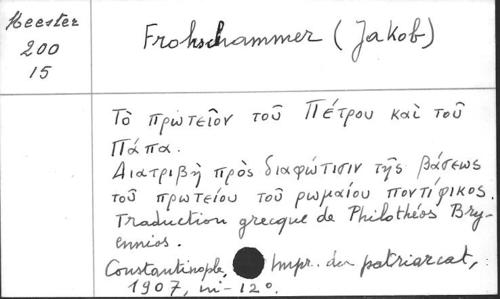 Heester
200
15
Frohschammer (Jakob)
Τὸ πρωτεῖον τοῦ Πέτρου καὶ τοῦ
Πάπα.
Διατριβὴ πρὸς διαφώτισιν τῆς βάσεως
τοῦ πρωτείου τοῦ ρωμαίου ποντίφικος.
Traduction grecque de Philothéos Bry-
ennios.
Constantinople, Impr. du patriarcat,
1907, in-12°.